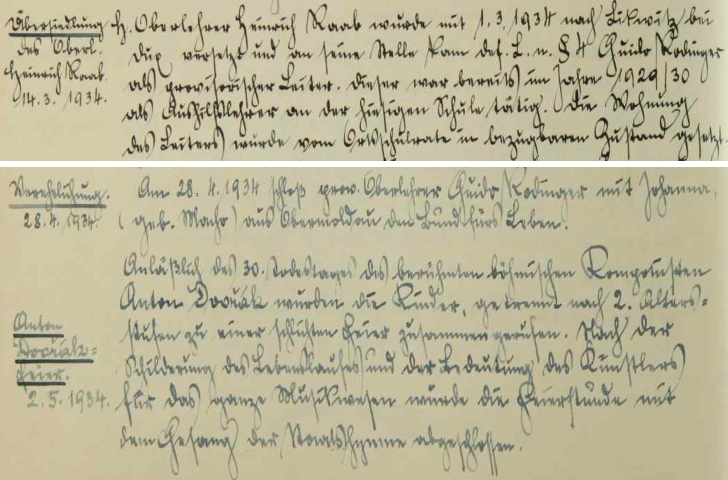 Übersiedlung
des Oberl.
Heinrich Raab.
14.3. 1934.
H. Oberlehrer Heinrich Raab wurde mit 1.3.1934 nach Likwitz bei
Dux versetzt und an seine Stelle kam def. L. n. § 4 Guido Rodinger
als provisorischer Leiter. Dieser war bereits im Jahre 1929/30
als Aushilfslehrer an der hiesigen Schule tätig. Die Wohnung
des Leiters wurde vom Ortsschulrate in bezugbaren Zustand gesetzt.
Verehelichung.
28.4.1934.
Am 28. 4. 1934 schloß prov. Oberlehrer Guido Rodinger mit Johanna
(geb. Macho) aus Obermoldau den Bund fürs Leben.
Anläßlich des 30. Todestages des berühmten böhmischen Komponisten
Anton Dvořák wurden die Kinder, getrennt nach 2. Alters-
stufen zu einer schlichten Feier zusammengerufen. Nach der
Schilderung des Lebenslaufes und der Bedeutung des Künstlers
für das ganze Musikwesen wurde die Feierstunde mit
dem Gesang der Staatshymne abgeschlossen.
Anton
Dvořák=
feier.
2.5.1934.